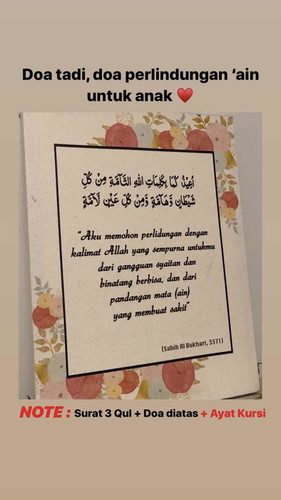 Doa tadi, doa perlindungan ‘ain
untuk anak ❤️
اُعِيْذُ كُمَا بِكَلِمَاتِ اللهِ التَّامَّةِ مِنْ كُلِّ
شَيْطَانٍ وَهَامَّةٍ وَمِنْ كُلِّ عَيْنٍ لَامَّةٍ
“Aku memohon perlidungan dengan
kalimat Allah yang sempurna untukmu
dari gangguan syaitan dan
binatang berbisa, dan dari
pandangan mata (ain)
yang membuat sakit”
(Sahih Al Bukhari, 3371)
NOTE : Surat 3 Qul + Doa diatas + Ayat Kursi